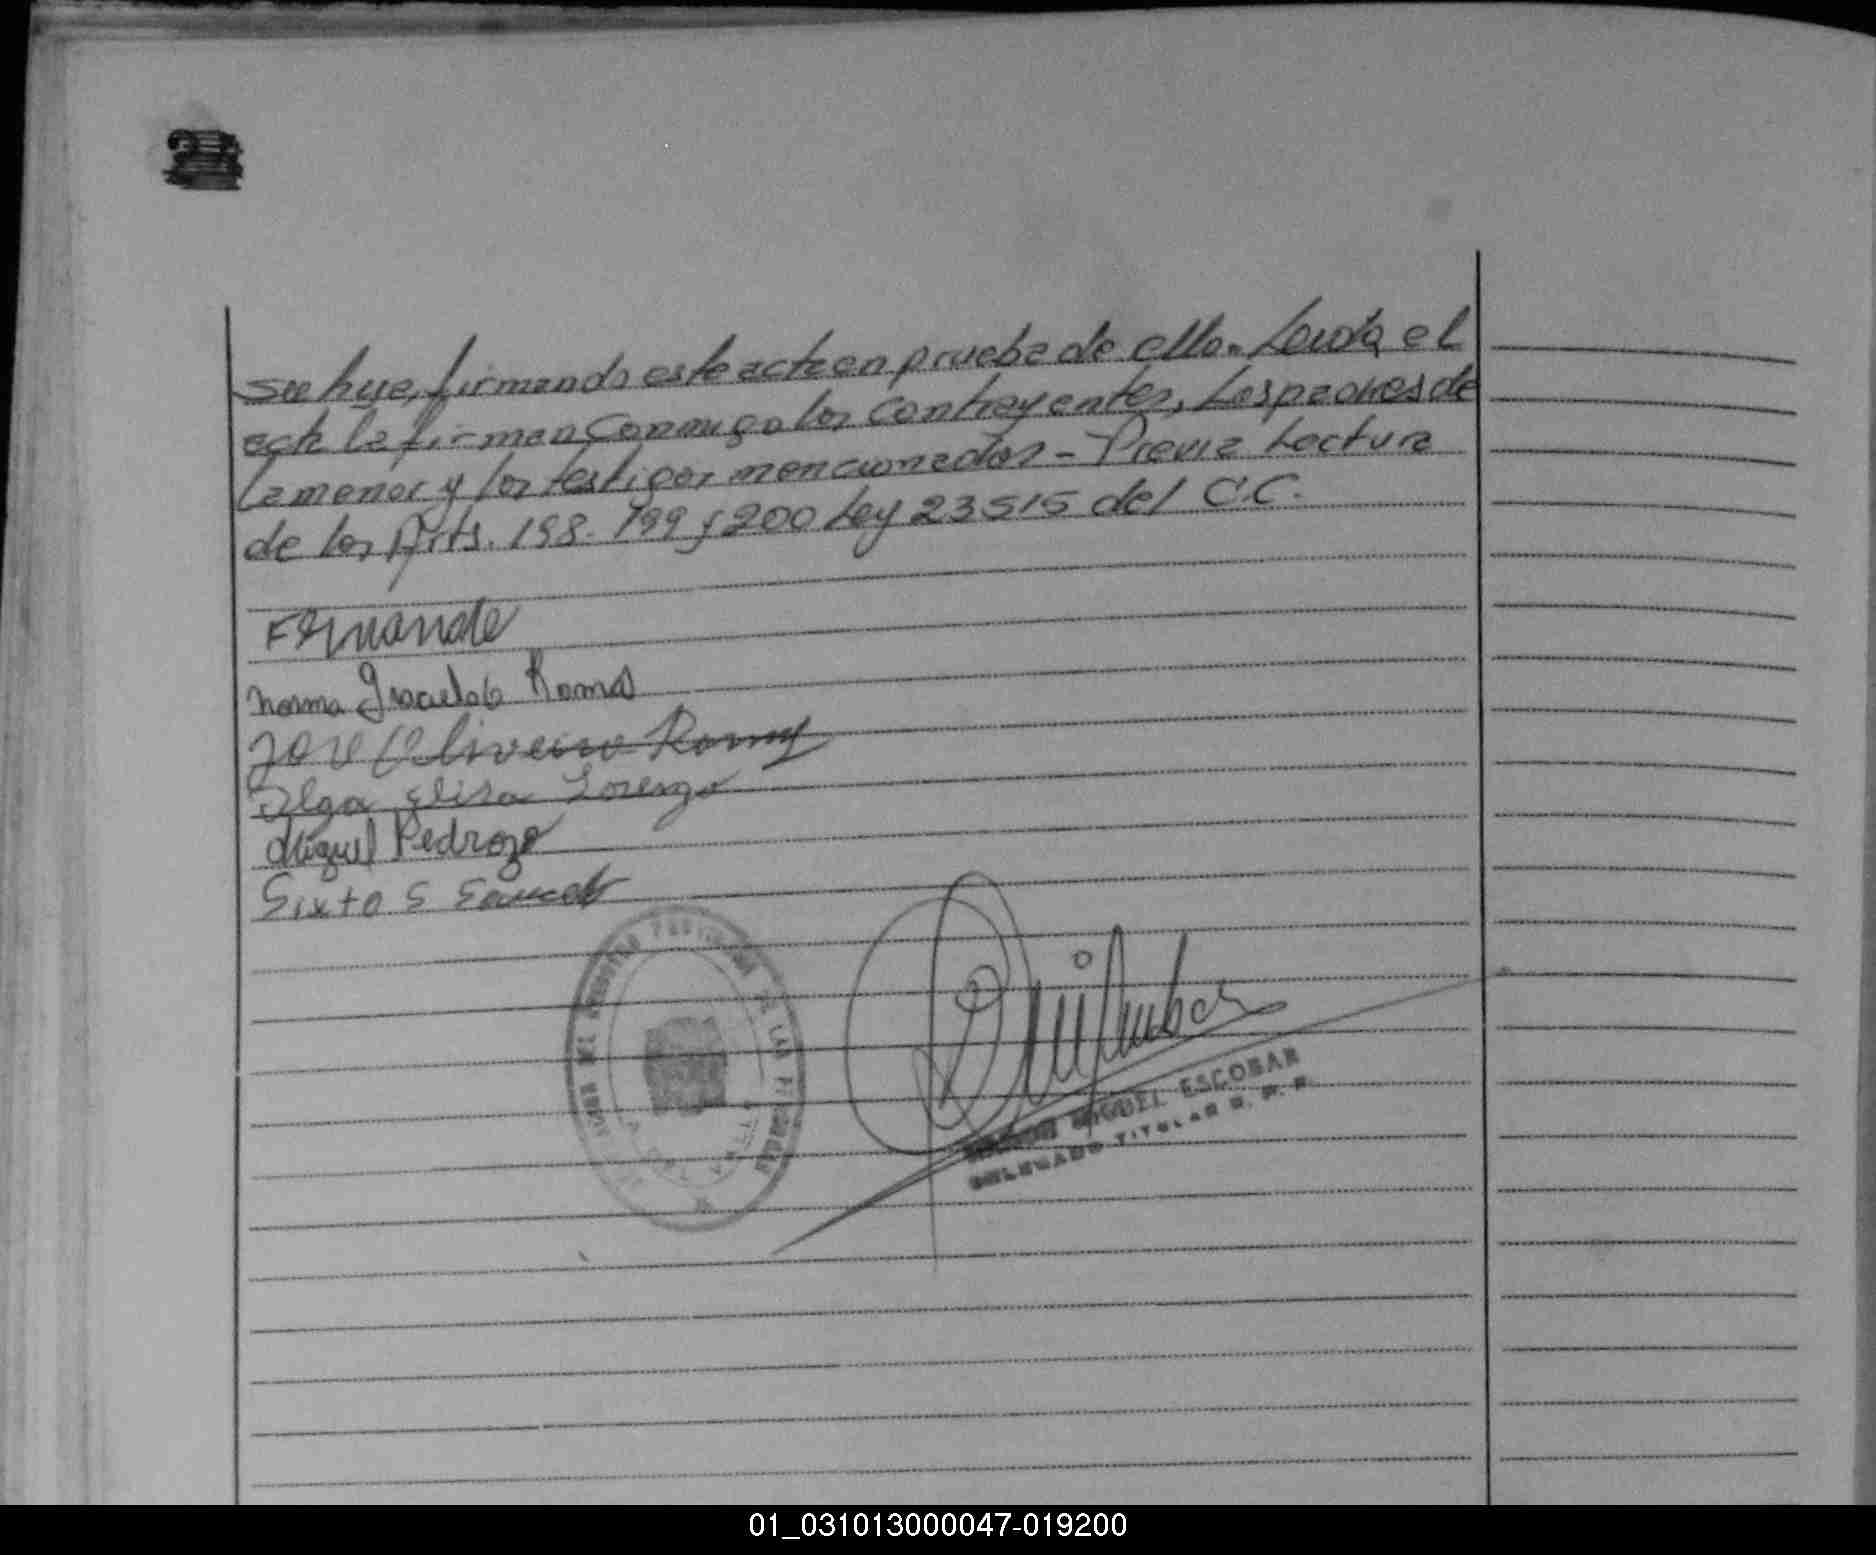 su hija, firmando este acta en prueba de ello. Leida el
acta la firman conmigo los contrayentes, los padres de
la menor y los testigos mencionados - Previa Lectura
de los Arts. 198. 199 y 200 Ley 23515 del C.C.
Fernande
Norma Graciela Roma
José Oliveiro Romy
Olga Elisa Lorenzo
Miguel Pedrozo
Sixto S
DE LAS PERSONAS
MIGUEL ESCOBAR
DELEGADO TITULAR R. P. P.
01_031013000047-019200